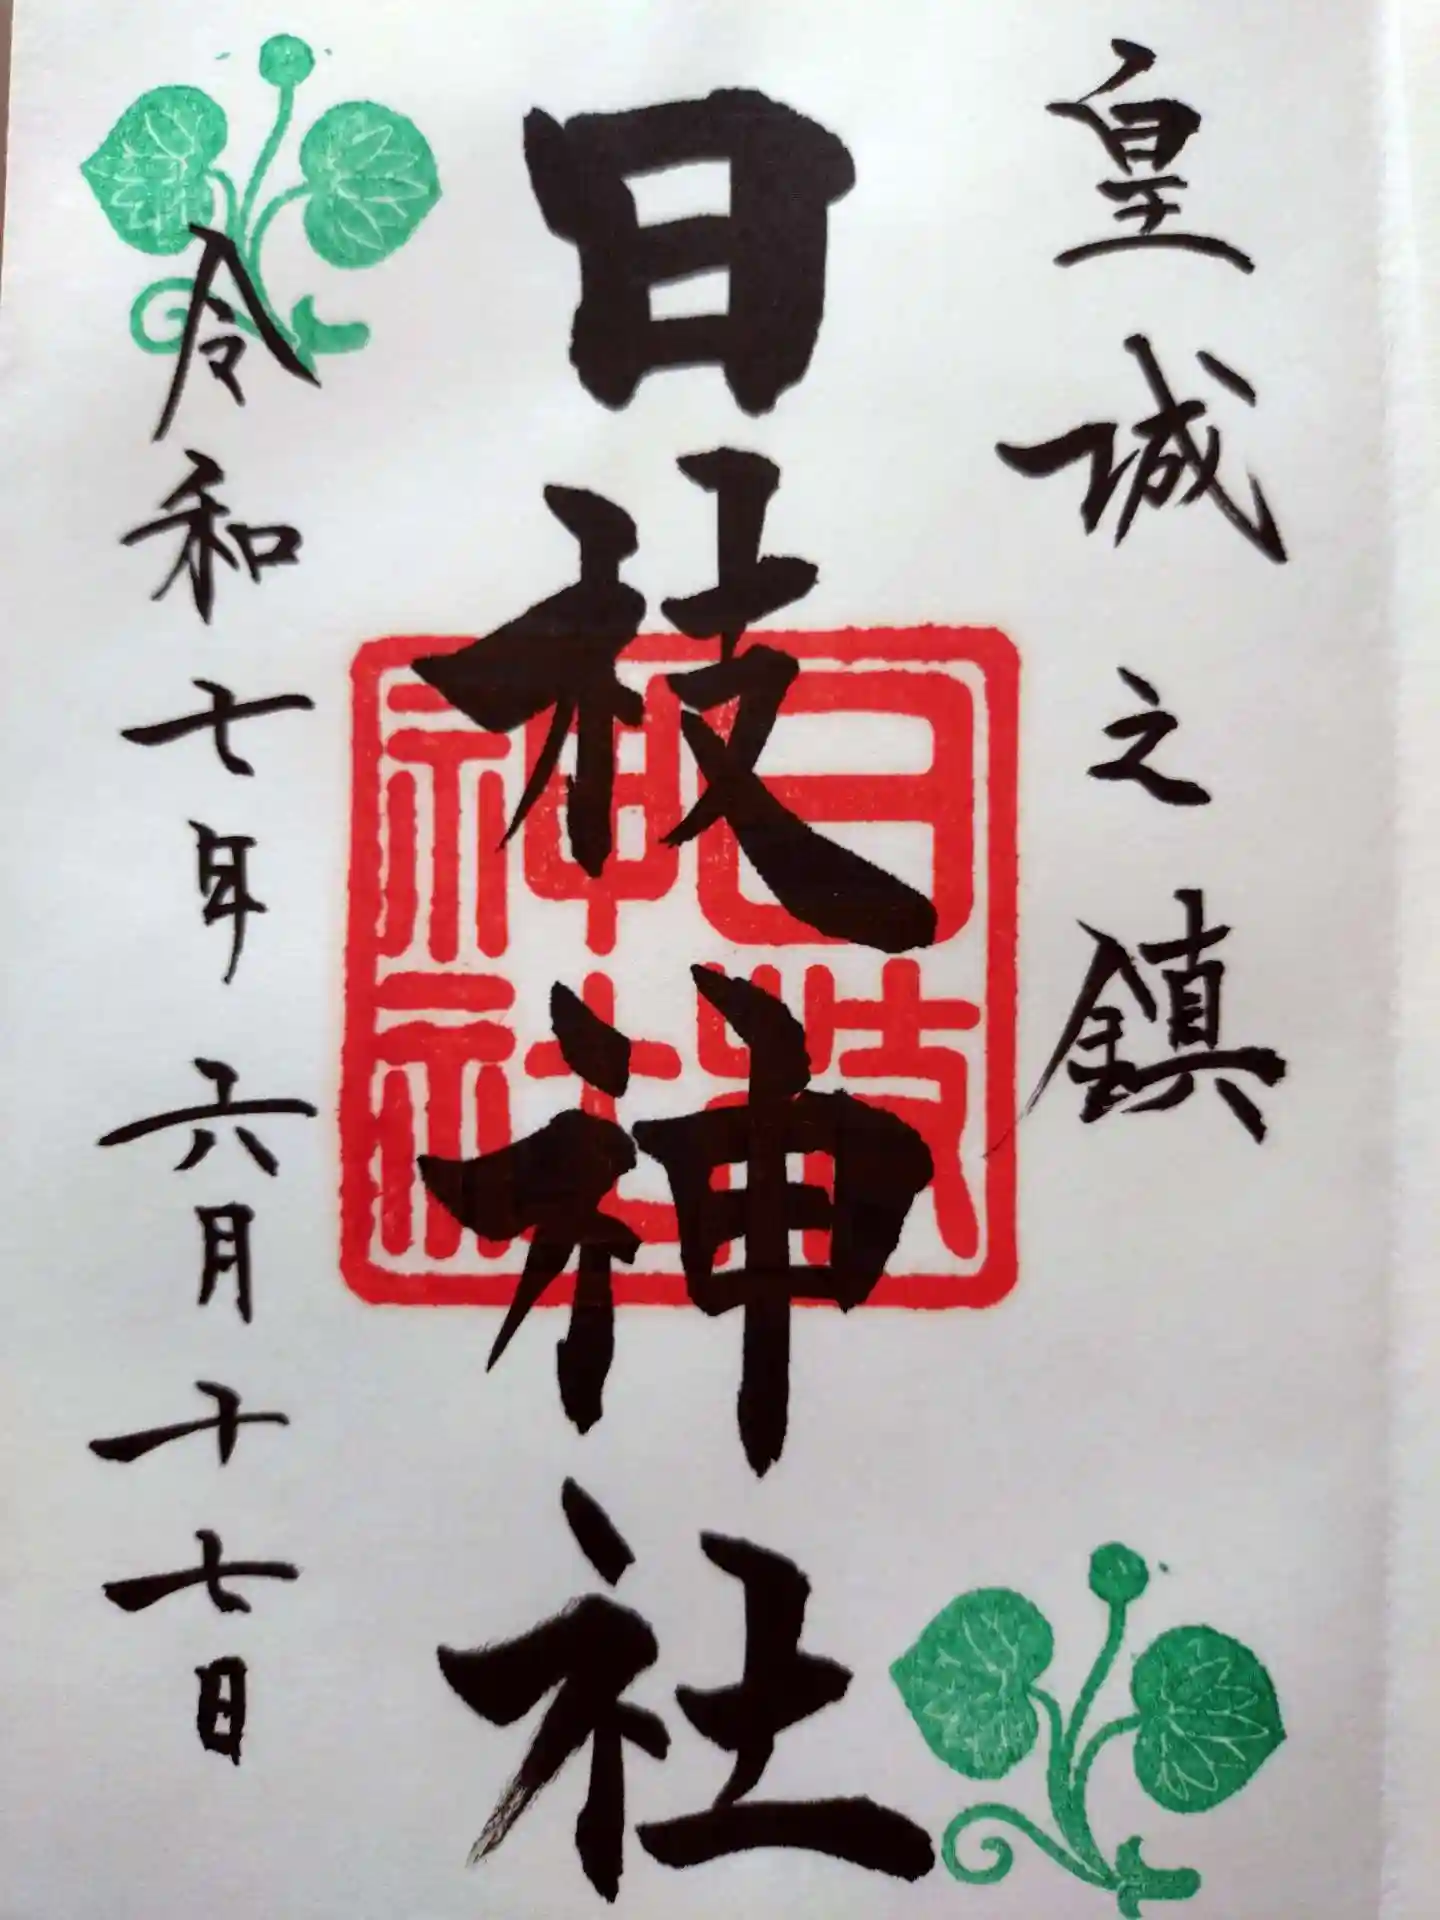 皇城之鎮
日枝神社
日枝神社
令和七年六月十七日